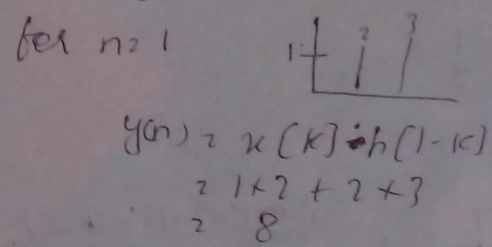 for n=1
1 2 3
y(n) = x[k] * h[1-k]
= 1×2 + 2×3
= 8